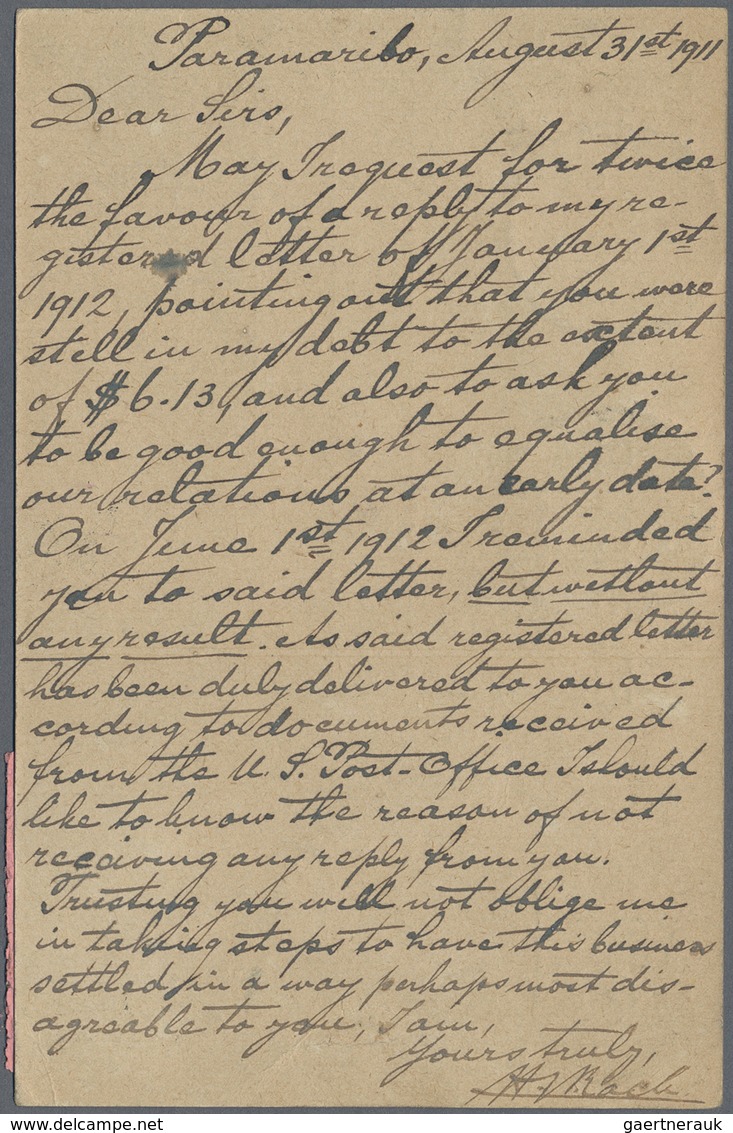 Paramaribo, August 31st 1911
Dear Sirs,
May I request for twice
the favour of a reply to my re-
gistered letter of January 1st
1912, pointing out that you were
still in my debt to the extent
of $6.13, and also to ask you
to be good enough to equalise
our relations at an early date?
On June 1st 1912 I reminded
you to said letter, but without
any result. As said registered letter
has been duly delivered to you ac-
cording to documents received
from the U.S. Post-Office I should
like to know the reason of not
receiving any reply from you.
Trusting you will not oblige me
in taking steps to have this business
settled in a way perhaps most dis-
agreable to you, I am,
Yours truly,
gaertnerauk